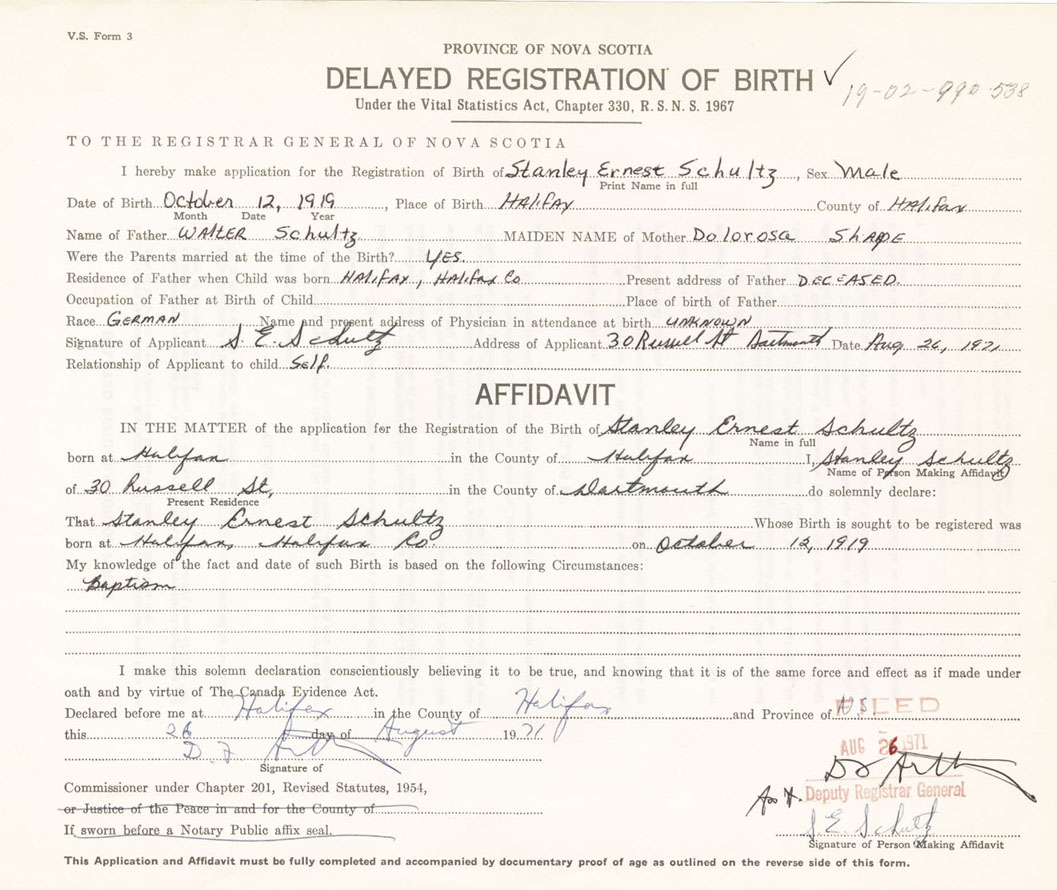 V.S. Form 3
PROVINCE OF NOVA SCOTIA
DELAYED REGISTRATION OF BIRTH ✓
19-02-990-538
Under the Vital Statistics Act, Chapter 330, R.S.N.S. 1967
TO THE REGISTRAR GENERAL OF NOVA SCOTIA
I hereby make application for the Registration of Birth of Stanley Ernest Schultz, Sex Male
Print Name in full
Date of Birth October 12, 1919, Place of Birth HAliFAX County of HAliFax
Month Date Year
Name of Father WAlTER Schultz MAIDEN NAME of Mother Dolorosa
Were the Parents married at the time of the Birth? YES.
Residence of Father when Child was born HAliFAX, HAliFax Co Present address of Father DECEASED.
Occupation of Father at Birth of Child Place of birth of Father
Race GERMAN Name and present address of Physician in attendance at birth UNKNOWN
Signature of Applicant S. E. Schultz Address of Applicant 30 Russell St Dartmouth Date Aug 26, 1971
Relationship of Applicant to child Self.
AFFIDAVIT
IN THE MATTER of the application for the Registration of the Birth of Stanley Ernest Schultz
Name in full
born at Halifax in the County of Halifax I, Stanley Schultz
Name of Person Making Affidavit
of 30 Russell St, in the County of Dartmouth do solemnly declare:
Present Residence
That Stanley Ernest Schultz Whose Birth is sought to be registered was
born at Halifax, Halifax Co. on October 12, 1919
My knowledge of the fact and date of such Birth is based on the following Circumstances:
Baptism
I make this solemn declaration conscientiously believing it to be true, and knowing that it is of the same force and effect as if made under
oath and by virtue of The Canada Evidence Act.
Declared before me at Halifax in the County of Halifax and Province of N.S.
FILED
this 26 day of August 1971
AUG 26 1971
D. F. Arth
Signature of
D F Arth
Commissioner under Chapter 201, Revised Statutes, 1954,
Deputy Registrar General
or Justice of the Peace in and for the County of
S. E. Schultz
If sworn before a Notary Public affix seal.
Signature of Person Making Affidavit
This Application and Affidavit must be fully completed and accompanied by documentary proof of age as outlined on the reverse side of this form.